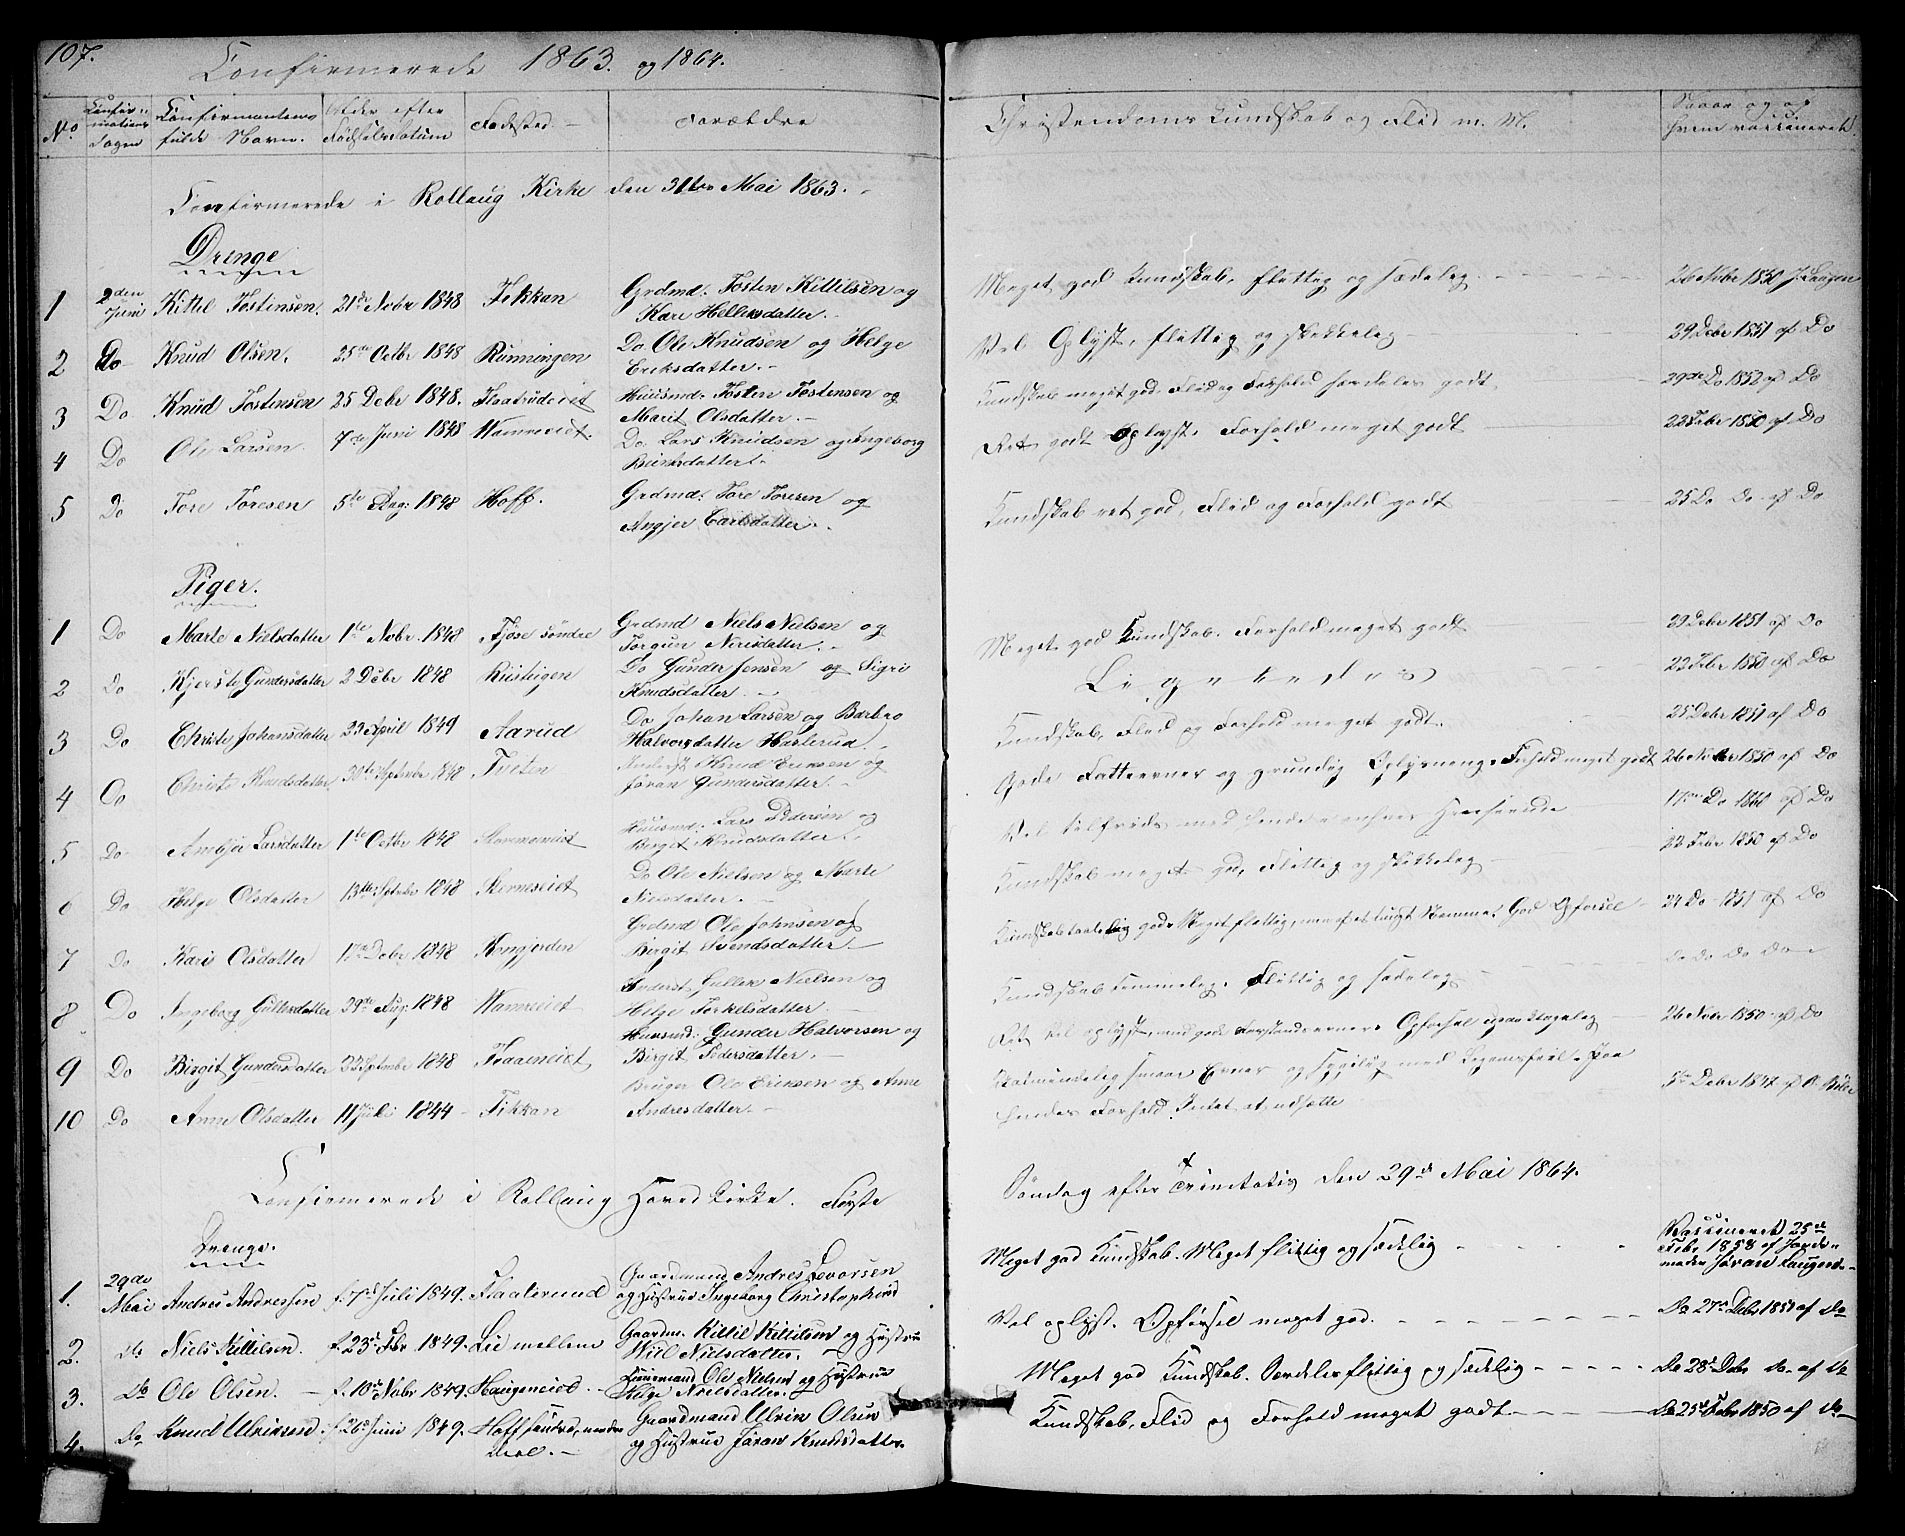 107.
Confirmerede 1863. og 1864.
No
Confir=
mations
Dagen
Confirmantens
fulde Navn.
Alder efter
Fødselsdatum
Fødested.
Forældre
Christendoms Kundskab og Flid m. M.
Naar og af
hvem vaccineret.
Confirmerede i Rollaug Kirke den 31te Mai 1863.
Drenge
1 2den Juni Kittel Tostensen. 21de Novbr 1848 Fekkan Grdmd. Tosten Kittilsen og
Kari Hellesdatter. Meget god Kundskab, flittig og sædelig. 26 Novbr 1850 J. Laagen
2 Do Knud Olsen. 25de Octbr 1848 Runningen Do Ole Knudsen og Helge
Eriksdatter. Vel Oplyst, flittig og skikkelig 29 Debr 1851 af Do
3 Do Knud Tostensen 25 Debr 1848. Huusmd. Tosten Tostensen og
Marit Olsdatter. Kundskab meget god, Flid og Forhold særdeles godt 29de Do 1852 af Do
4 Do Ole Larsen 7de Juni 1848 Do Lars Knudsen og Ingeborg
Ret godt Oplyst. Forhold meget godt 22 Febr 1850 af Do
5 Do Tore Toresen 5te Aug: 1848 Hoff. Grdmd. Tore Toresen og
Angjer Carlsdatter. Kundskab ret god, Flid og Forhold godt 25 Do Do af Do
Piger.
1 Do Marte Nielsdatter 1te Nobr. 1848 Fjøse søndre Grdmd Niels Nielsen og
Torgun Nirisdatter. Meget god Kundskab. Forhold meget godt 29 Debr 1851 af Do
2 Do Kjersti Gundersdatter 2 Debr 1848 Ruistuigen Do Gunder Jensen og Sigri
Knudsdatter. Ligeledes 22 Febr 1850 af Do
3 Do Christi Johansdatter 23 April 1849 Aarud Do Johan Larsen og Barbro
Halvorsdatter Kundskab, Flid og Forhold meget godt. 25 Debr 1851 af Do
4 Do Christi Knudsdatter 30te Septembr 1848 Tveten Knud Eriksen og
Jøran Gundersdatter. Gode Fatteevner og grundig Oplysning. Forhold meget godt 26 Novbr 1850 af Do
5 Do Ambjør Larsdatter 1te Octbr 1848 Huusmd. Lars Pedersen og
Birgit Knudsdatter. Vel tilfreds med hende i enhver Henseende 17de Do 1860 af Do
6 Do Helge Olsdatter 13te Septbr 1848 Do Ole Nielsen og Marte
Nielsdatter. Kundskab meget god, Flittig og skikkelig 22 Febr 1850 af Do
7 Do Kari Olsdatter 17de Debr 1848 Kongjorden Grdmd Ole Johnsen og
Birgit Svendsdatter. Kundskab taalelig god. Meget flittig, men af et tungt Nemme. God Opførsel 24 Do 1851 af Do
8 Do Ingeborg Gullesdatter 29de Aug: 1848 Gullik Nielsen og
Helge Torkelsdatter Kundskab temmelig. Flittig og sædelig Do Do Do Do
9 Do Birgit Gundersdatter 22 Septmbr 1848 Traaeneiet Huusmd: Gunder Halvorsen og
Birgit Pedersdatter. Ret vel oplyst, med gode Forstandsevner. Opførsel upaaklagelig 26 Nobr 1850 af Do
10 Do Anne Olsdatter 11 Juli 1844 Fikkan Bruger Ole Eriksen og Anne
Andresdatter. Almindelig smaae Evner og sygelig med Legemsfeil. Paa
hendes Forhold Intet at udsætte 5te Debr 1847 af
Confirmerede i Rollaug Hoved Kirke. Første Søndag efter Trinitatis den 29de Mai 1864.
Drenge.
1. 29de Mai Andres Andressen f. 7de Juli 1849. Flaaterund Gaardmand Andres Levorsen
og Hustrue Ingeborg Christophersd Meget god Kundskab. Meget flittig og sædelig Vaccineret 25de
Febr 1858 af Jorde=
moder Jøran
2. do Niels Kittilsen. f. 23de Fbr. 1849. Lie mellem Gaardm. Kittil Kittilsen og Hustrue
Nielsdatter. Vel oplyst. Opførsel meget god. Do 27de Debr 1851 af do
3. Do Ole Olsen. f. 10de Nobr 1849. Haugeneiet Huusmand Ole Nielsen og Hustrue
Helge Nielsdatter. Meget god Kundskab. Særdeles flittig og sædelig Do 28de Debr do. af do
4. Do Knud Ulriksen f. 26de Juni 1849. Hoff søndre, nordre
Deel. Gaardmand Ulrik Olsen
og Hustrue Jøran Knudsdatter. Kundskab, Flid og Forhold meget godt Do 25de Febr 1850 af do